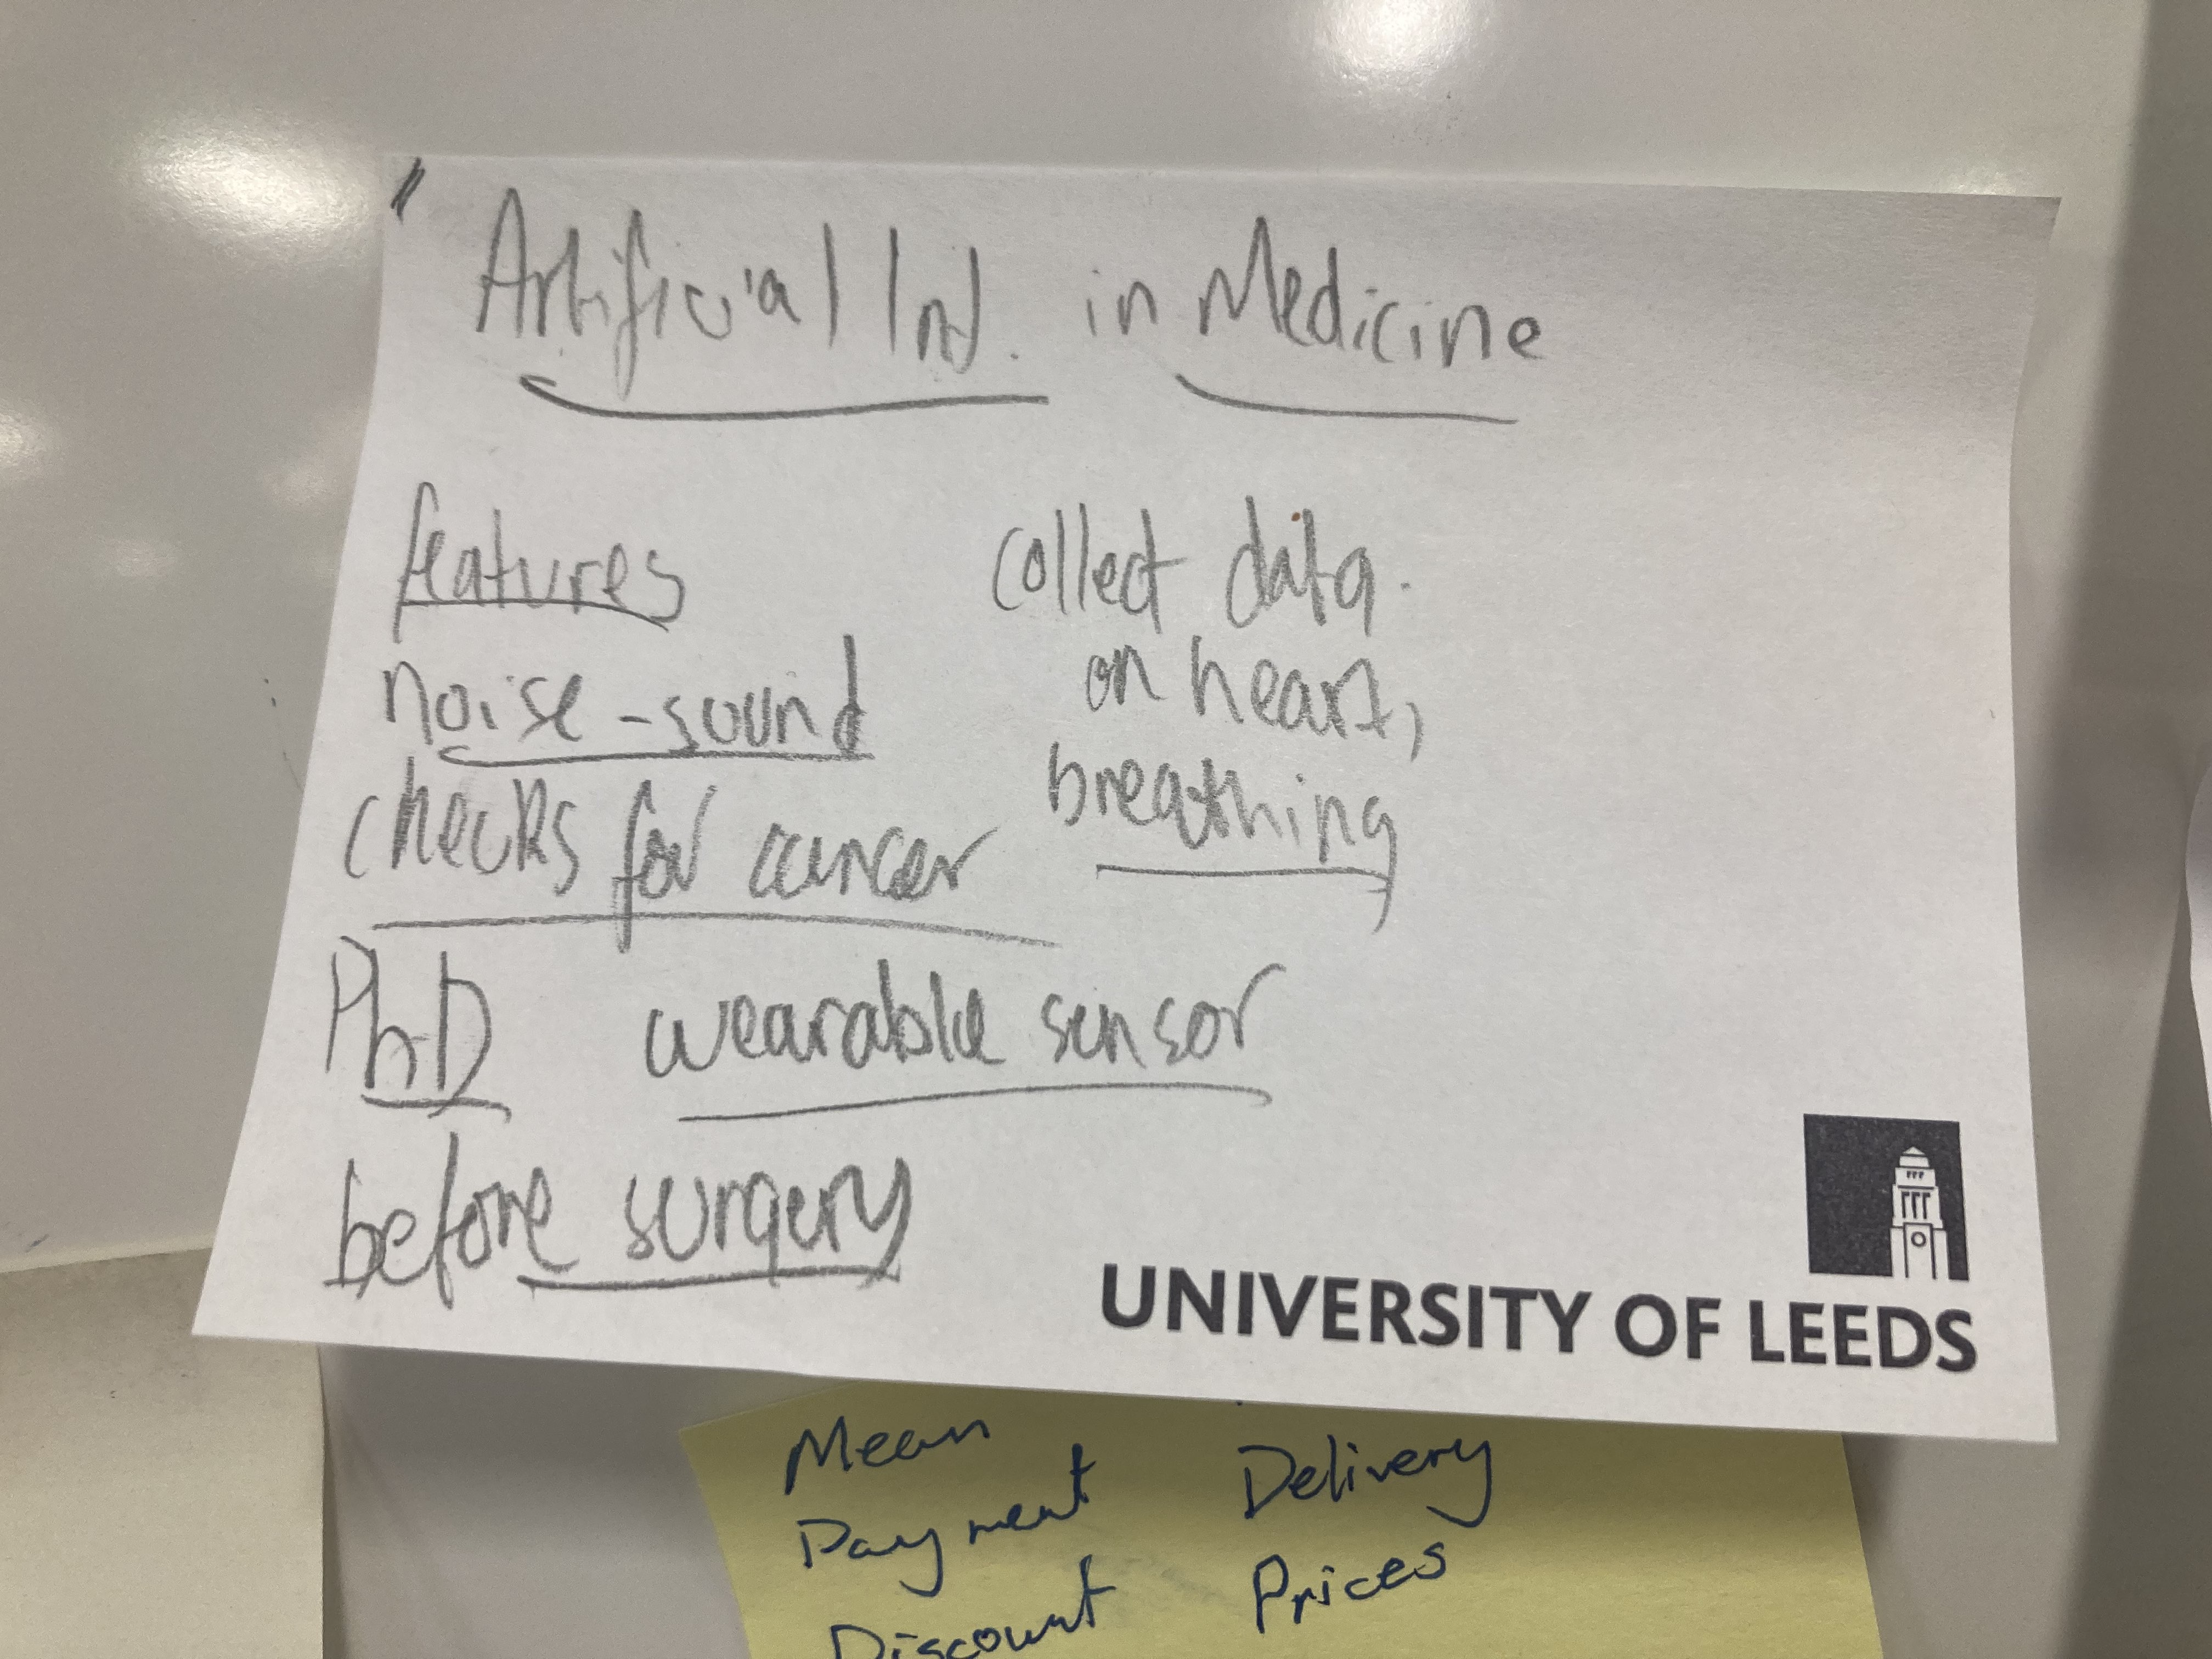 " Artificial Int. in Medicine
features
noise - sound
checks for cancer
collect data.
on heart,
breathing
PhD wearable sensor
before surgery
UNIVERSITY OF LEEDS
Mean
Payment Delivery
Discount Prices